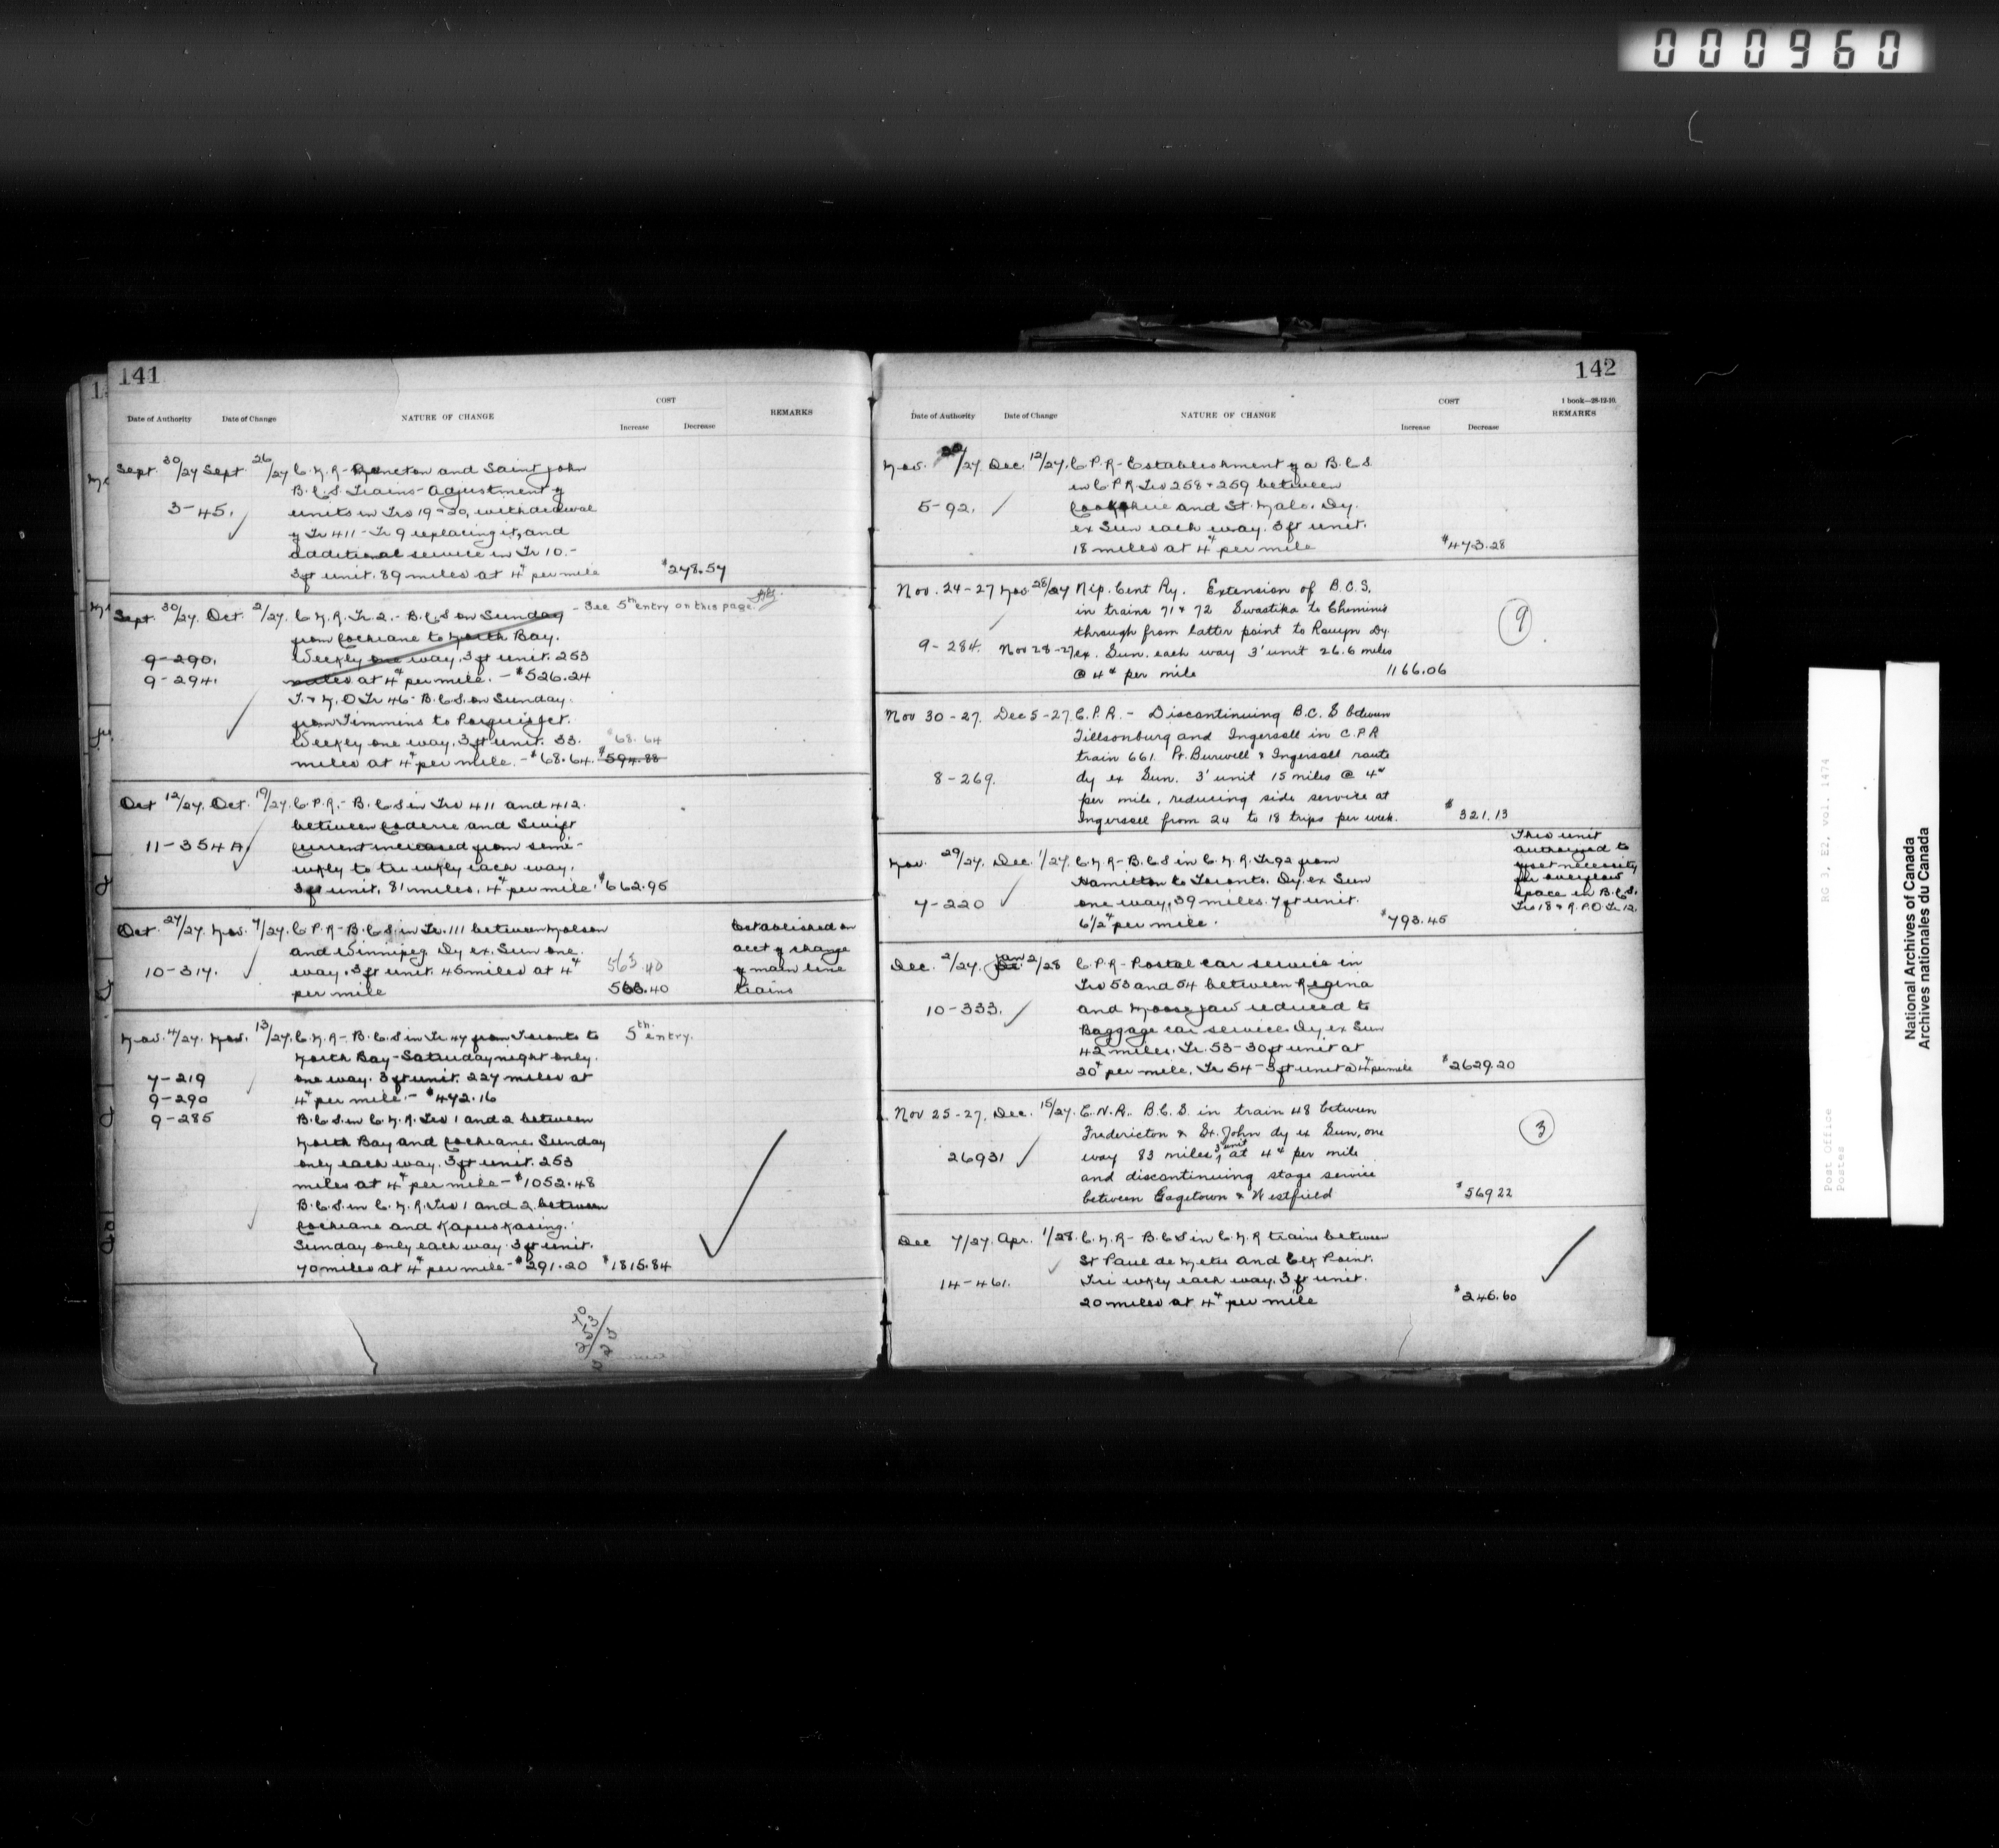 000960
141
Date of Authority Date of Change NATURE OF CHANGE COST Increase Decrease REMARKS
Sept. 30/27 Sept 26/27 C.N.R - Moncton and Saint John
B.C.S. Trains - Adjustment of
3-45. units in Trs 19 & 20, withdrawal
of Tr 411 - Tr 9 replacing it, and
additional service in Tr 10.-
3 ft unit. 89 miles at 4¢ per mile $278.57
Sept. 30/27. Oct 2/27. C.N.R. Tr. 2. - B.C.S on Sunday - See 5th entry on this page.
from Cochrane to North Bay.
9-290. Weekly one way. 3 ft unit. 253
9-294. miles at 4¢ per mile. - $526.24
T. & N.O Tr 46 - B.C.S. on Sunday
from Timmins to Porquis Jct.
Weekly one way. 3 ft unit. 33. $68.64
miles at 4¢ per mile. - $68.64. $594.88
Oct 12/27. Oct. 19/27. C.P.R. - B.C.S in Trs 411 and 412.
between Coderre and Swift
11-354 A. Current increased from semi-
wkly to tri wkly each way.
3 ft unit. 81 miles. 4¢ per mile. $662.95
Oct 27/27. Nov. 7/27. C.P.R - B.C.S. in Tr. 111 between Molson Established on
and Winnipeg. Dy ex. Sun one acct of change
10-317. way. 3 ft unit. 45 miles at 4¢ 563.40 of main line
per mile 563.40 trains
Nov. 4/27. Nov. 13/27. C.N.R - B.C.S in Tr. 47 from Toronto to 5th entry.
North Bay - Saturday night only.
7-219 one way. 3 ft unit. 227 miles at
9-290 4¢ per mile. - $472.16
9-285 B.C.S. in C.N.R. Trs 1 and 2 between
North Bay and Cochrane Sunday
only each way. 3 ft unit. 253
miles at 4¢ per mile - $1052.48
B.C.S. in C.N.R. Trs 1 and 2 between
Cochrane and Kapuskasing.
Sunday only each way. 3 ft unit.
70 miles at 4¢ per mile - $291.20 $1815.84
142
1 book-28-12-10.
Date of Authority Date of Change NATURE OF CHANGE COST Increase Decrease REMARKS
Nov. 22/27. Dec. 12/27. C.P.R - Establishment of a B.C.S.
in C.P.R. Trs 258 & 259 between
5-92. Cookshire and St. Malo. Dy.
ex Sun each way. 3 ft unit.
18 miles at 4¢ per mile $473.28
Nov. 24-27 Nov. 28/27 Nip. Cent Ry. Extension of B.C.S.
in trains 71 & 72 Swastika to Cheminis
through from latter point to Rouyn Dy. 9
9-284. Nov 28-27 ex. Sun. each way 3' unit 26.6 miles
@ 4¢ per mile 1166.06
Nov 30-27. Dec 5-27. C.P.R. - Discontinuing B.C.S between
Tillsonburg and Ingersoll in C.P.R
train 661. Pt. Burwell & Ingersoll route
8-269. dy ex Sun. 3' unit 15 miles @ 4¢
per mile, reducing side service at
Ingersoll from 24 to 18 trips per week. $321.13
Nov. 29/27. Dec. 1/27. C.N.R - B.C.S in C.N.R. Tr 92 from
Hamilton to Toronto. Dy. ex Sun
7-220 one way. 39 miles. 7 ft unit.
6 1/2¢ per mile. $793.45
This unit
authorized to
offset necessity
for overflow
space in B.C.S.
Trs 18 & R.P.O Tr 12.
Dec. 2/27. Jan 2/28 C.P.R - Postal car service in
Trs 53 and 54 between Regina
10-333. and Moose Jaw reduced to
Baggage car service. Dy ex Sun
42 miles. Tr. 53 - 30 ft unit at
20¢ per mile. Tr 54 - 3 ft unit @ 4¢ per mile $2629.20
Nov 25-27. Dec. 15/27. C.N.R. B.C.S. in train 48 between
Fredericton & St. John dy ex Sun, one 3
26931 way 83 miles, 3' unit at 4¢ per mile
and discontinuing stage service
between Gagetown & Westfield $569.22
Dec 7/27. Apr. 1/28. C.N.R - B.C.S in C.N.R trains between
St Paul de Metis and Elk Point.
14-461. Tri wkly each way. 3 ft unit.
20 miles at 4¢ per mile $246.60
Post Office
Postes
RG 3, E2, vol. 1474
National Archives of Canada
Archives nationales du Canada